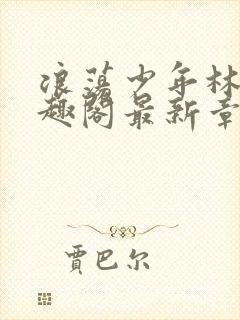 浪荡少年林
趣阁最新章
贾巴尔